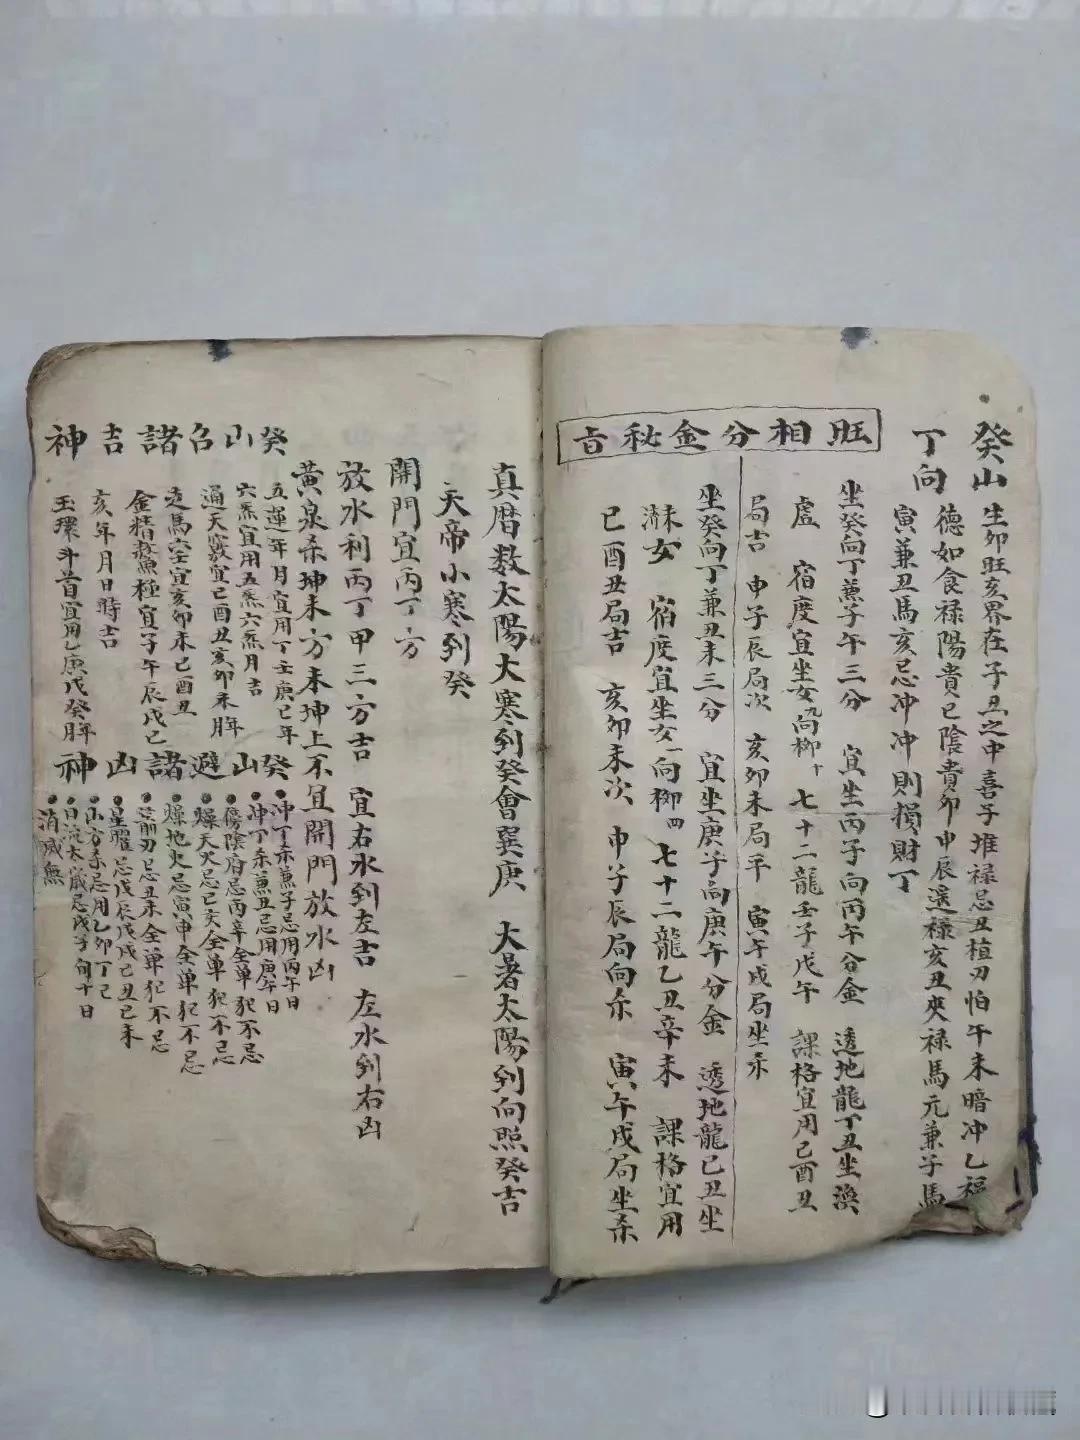 癸山丁向
生卯旺亥界在子丑之中喜子堆禄忌丑植刃怕午未暗冲乙福
德如食禄陽貴巳陰貴卯申辰遥禄亥丑夾禄馬元兼子馬
寅兼丑馬亥忌冲冲則損財丁
旺相分金秘旨
坐癸向丁兼子午三分 宜坐丙子向丙午分金 透地龍丁丑坐渙
虚 宿度宜坐女九向柳十 七十二龍壬子戊午 課格宜用巳酉丑
局吉 申子辰局次 亥卯未局平 寅午戌局坐杀
坐癸向丁兼丑未三分 宜坐庚子向庚午分金 透地龍己丑坐
女 宿度宜坐女一向柳四 七十二龍乙丑辛未 課格宜用
巳酉丑局吉 亥卯未次 申子辰局向杀 寅午戌局坐杀
真曆数太陽大寒到癸會巽庚 大暑太陽到向照癸吉
天帝小寒到癸
開門宜丙丁方
放水利丙丁甲三方吉 宜右水到左吉 左水到右凶
黄泉杀坤未方未坤上不宜開門放水凶
癸山召諸吉神
五運年月宜用丁壬庚巳年
六炁宜用五炁六炁月吉
通天竅宜巳酉丑亥卯未年月
走馬六壬宜亥卯未巳酉丑
金精鰲極宜子午辰戌巳
亥年月日時吉
玉環斗首宜用乙庚戊癸年
癸山避諸凶神
冲丁杀兼子忌用丙午日
冲丁杀兼丑忌用庚午日
傷陰府忌丙辛全單犯不忌
燥天火忌巳亥全單犯不忌
燥地火忌寅申全單犯不忌
箭刃忌丑未全單犯不忌
星曜忌戊辰戊戌己丑己未
山方杀忌用乙卯丁巳
日流太歲忌戊子旬十日
消滅無